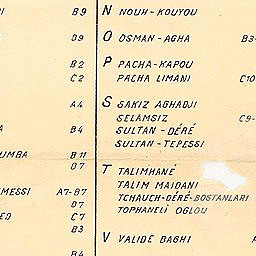 B9
D9
B2
C2
A4
A B4
UMBA B11
D7
MESSI A7-87
D7
ED C7
B3
B4
N NOUH-KOUYOU
O OSMAN-AGHA B3-
P PACHA-KAPOU
PACHA LIMANI C10
S SAKIZ AGHADJI
SELAMSIZ C9-
SULTAN-DÉRÉ
SULTAN-TEPESSI
T TALIMHANÉ
TALIM MAIDANI
TCHAUCH-DÉRÉ-BOSTANLARI
TOPHANELI OGLOU
V VALIDE BAGHI